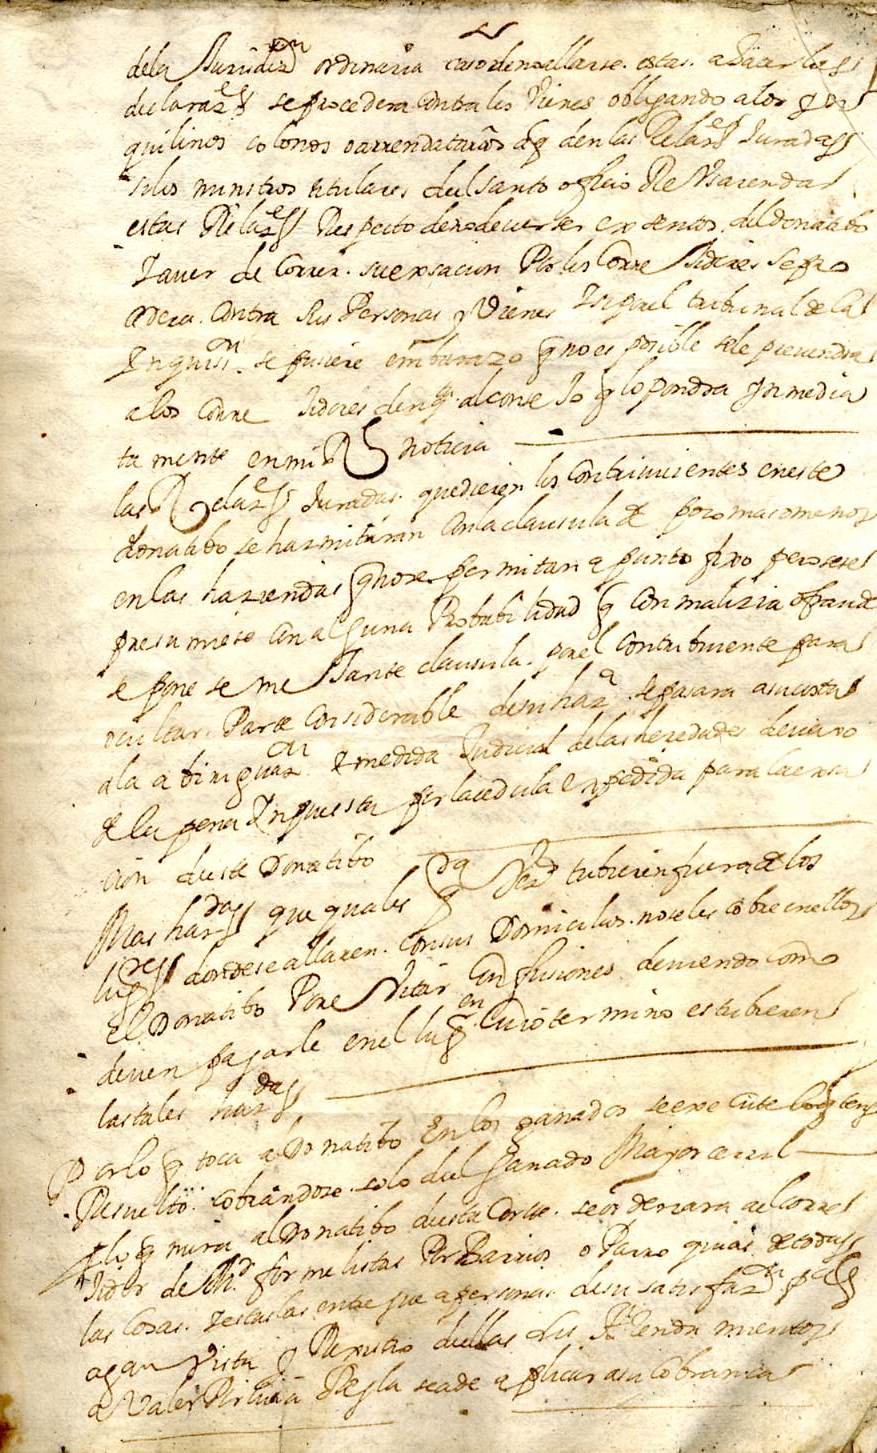 dela Jurisdiz.on ordinaria caso denoallarse estas a dar las
declaraz.es se procedera contra los vienes obligando a los yn
quilinos colonos o arrendatarios a q den las Relaz.es Juradas
silos ministros titulares del santo oficio Reusaren dar
estas Relaz.es Respecto de no dever ser exsentos del donatibo
y aver de correr su exsacion Por los Corre xidores se pro
zedera contra sus Personas y vienes y si por el tribunal de la
Ynquisi.on se pusiere embarazo q no es posible se le prevendra
a los Corre xidores den q.ta al conse Jo q lo pondra ynmedia
ta mente en mi R noticia
las Relaz.es Juradas que dieren los Contriuuientes en este
donatibo se hazmitiran con la clausula de poco mas o menos
en las haziendas q no se permitan a punto fixo pero si se
presumiese con alguna Probabilidad q con malizia o fraude
se pone se me Jante clausula por el contribuiente para
ocultar Parte Considerable de su haz.a se pasara a su costa
ala aberiguaz.on y medida Judicial de las heredades devajo
de la pena ynpuesta por la cedula expedida para la exsa
cion deste Donatibo
Mas haz.das que quales q.da Vez.d tubieren fuera de los
lug.res donde se allaren con sus Domicilios no se les cobre en ellos
El Donatibo Por evitar confusiones deviendo como
deven pagarle en el lug.r en cuio termino estubieren
las tales haz.das
Por lo q toca al Donatibo En los ganados se exe cute lo q tengo
Resuelto cobrandose solo del ganado Mayor a real
y lo q mira al Donatibo desta Corte se ordenara al Corre
xidor de M.d forme listas Por Barrios o Parro quias de todas
las Casas y estas las entre gue a personas de su satisfaz.on p.a q
agan vista y Rexistro dellas y sus Arrendamientos
a Valer Por cuia Regla se a de aplicar a su cobranza